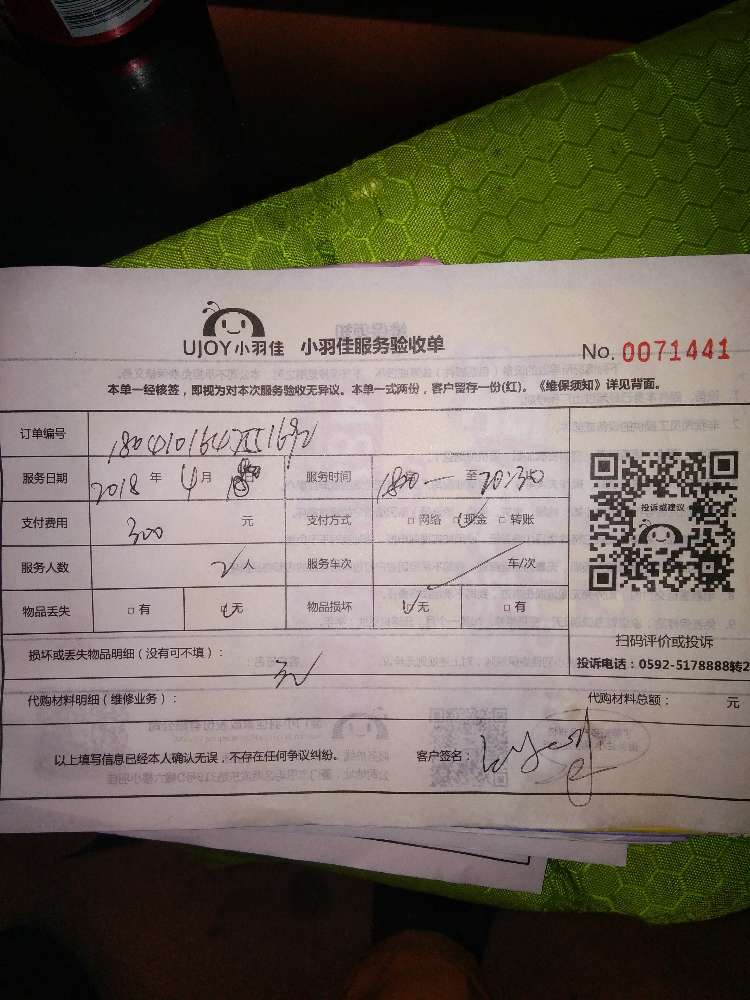 UJOY小羽佳 小羽佳服务验收单
No. 0071441
本单一经核签，即视为对本次服务验收无异议。本单一式两份，客户留存一份(红)。《维保须知》详见背面。
订单编号
服务日期 2018 年 4 月 日 服务时间 至
支付费用 300 元 支付方式 □ 网络 □ 现金 □ 转账
服务人数 2 人 服务车次 车/次
物品丢失 □ 有 □ 无 物品损坏 □ 无 □ 有
投诉或建议
扫码评价或投诉
投诉电话：0592-5178888转2
损坏或丢失物品明细（没有可不填）：
代购材料明细（维修业务）： 代购材料总额： 元
以上填写信息已经本人确认无误，不存在任何争议纠纷。 客户签名：